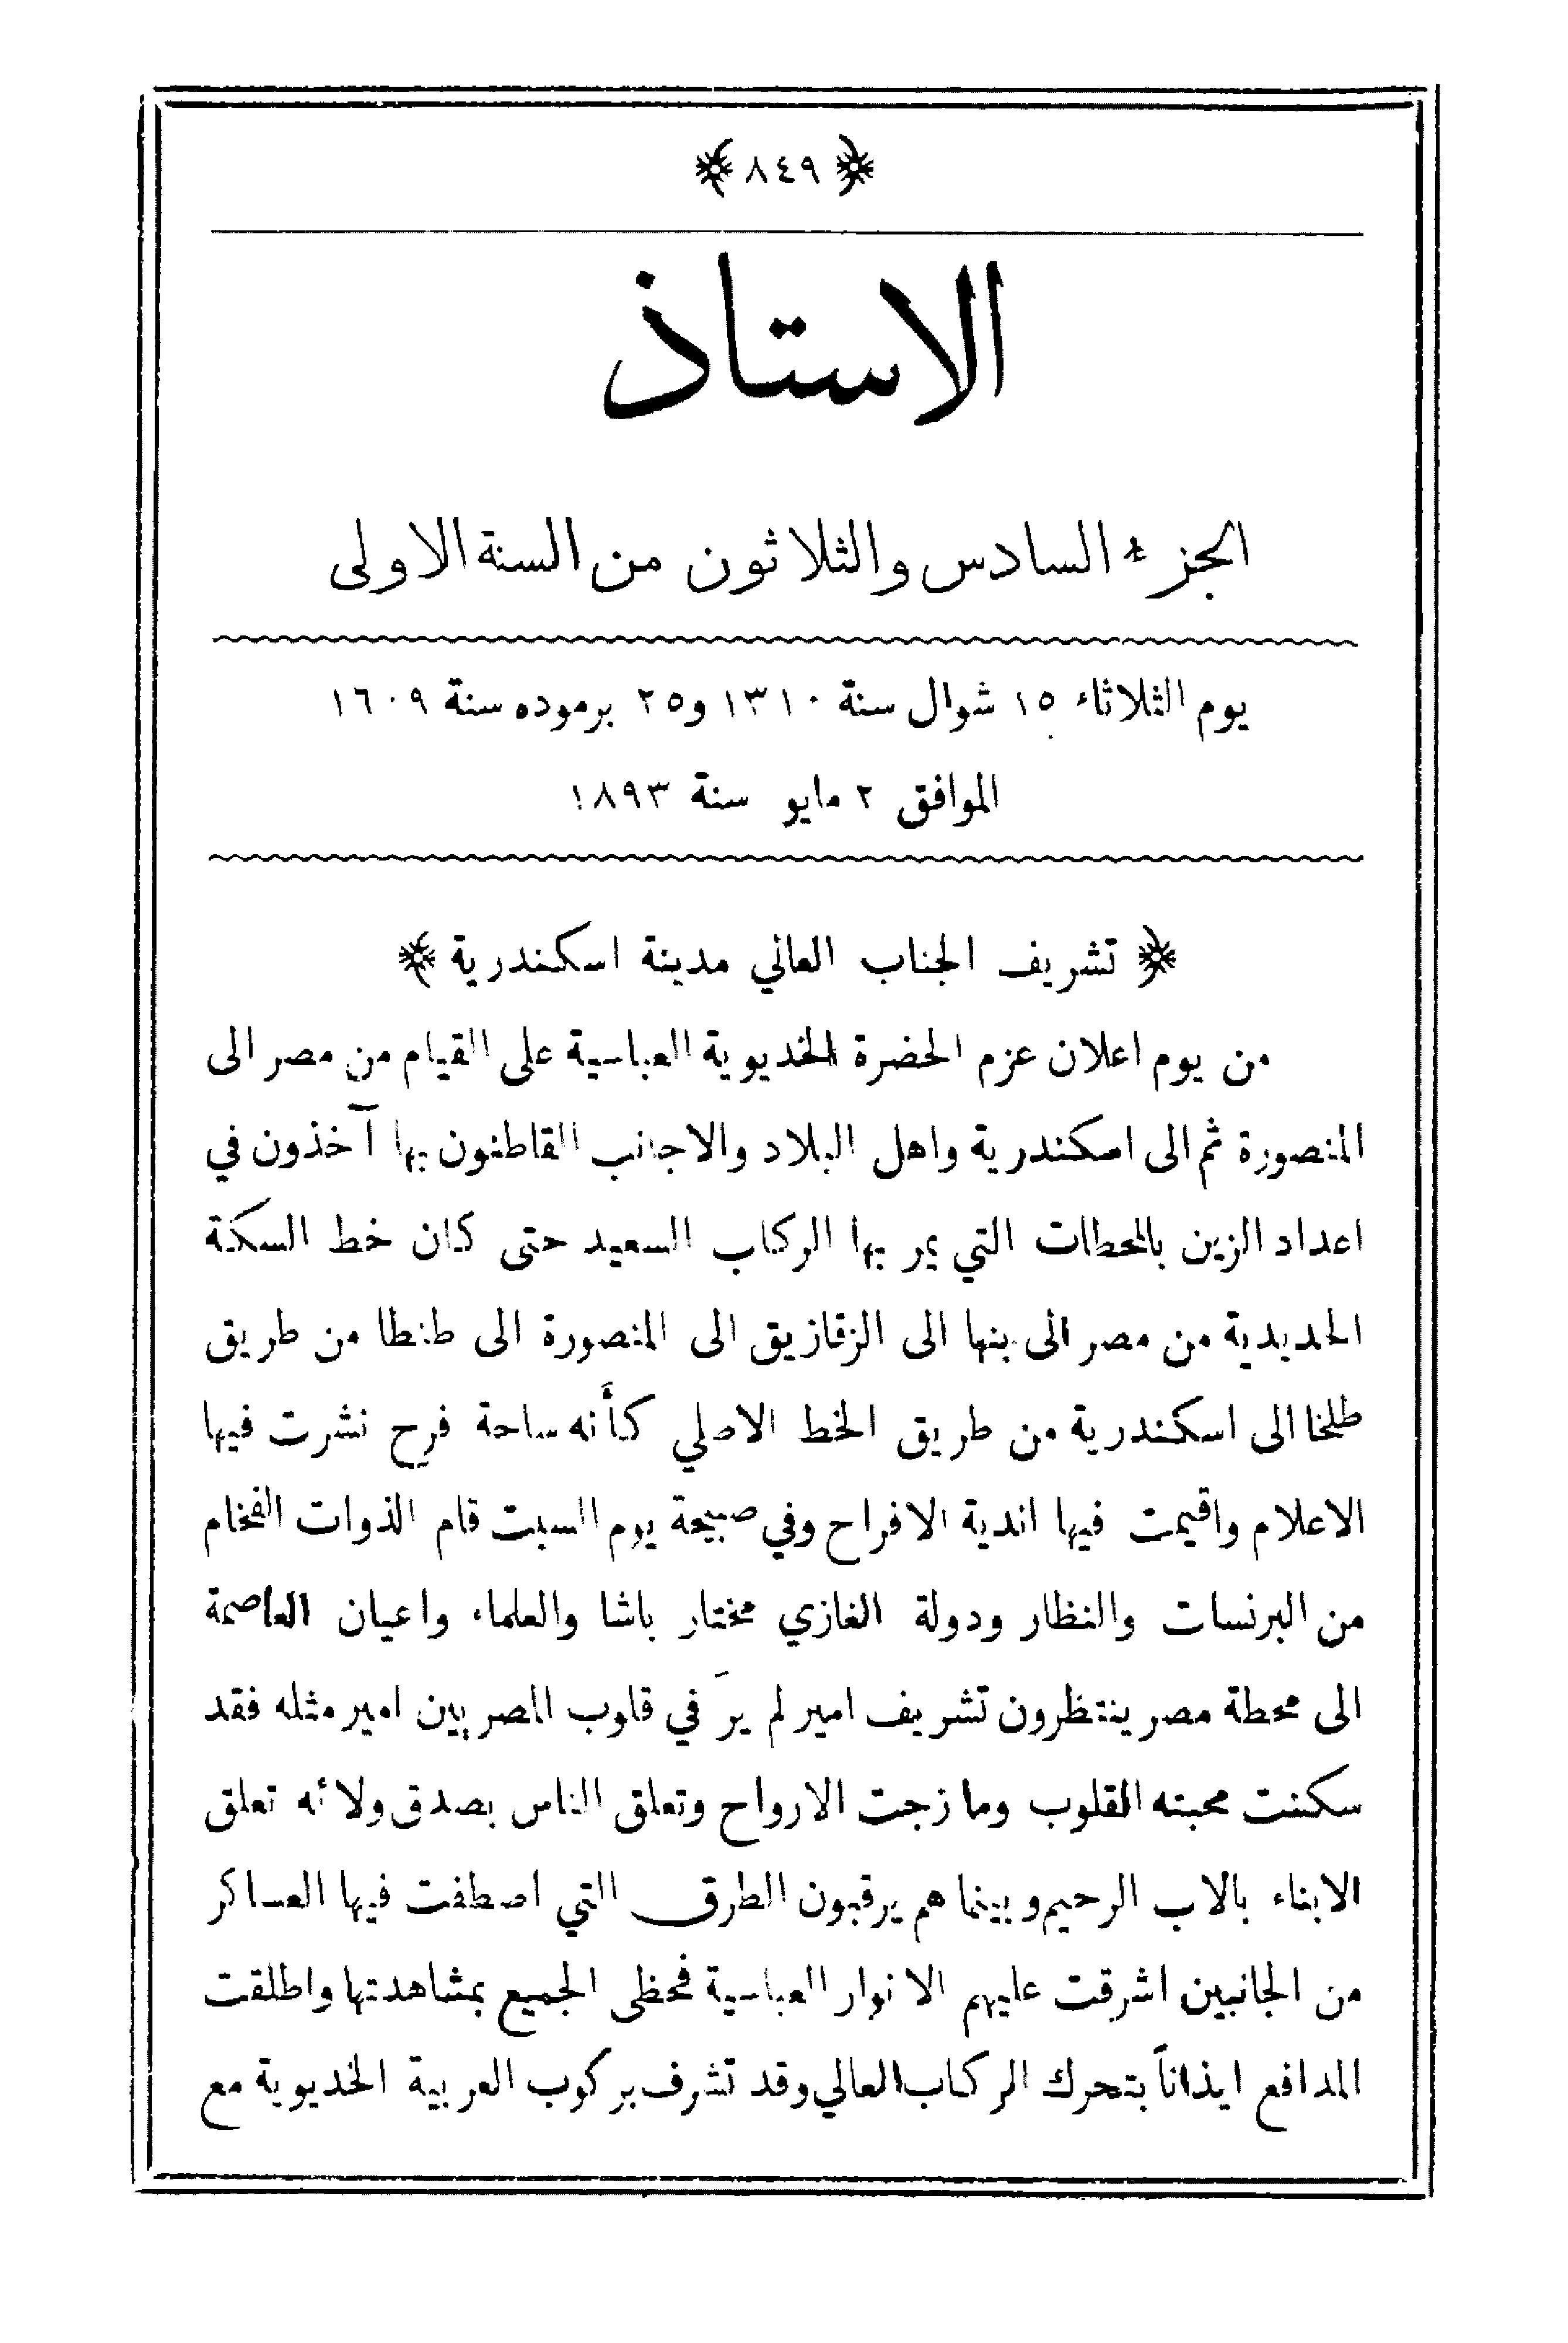 ﴿ ٨٤٩ ﴾
الاستاذ
الجزء السادس والثلاثون من السنة الاولى
يوم الثلاثاء ١٥ شوال سنة ١٣١٠ و٢٥ برموده سنة ١٦٠٩
الموافق ٢ مايو سنة ١٨٩٣
﴿ تشريف الجناب العالي مدينة اسكندرية ﴾
من يوم اعلان عزم الحضرة الخديوية العباسية على القيام من مصر الى
المنصورة ثم الى اسكندرية واهل البلاد والاجانب القاطنون بها آخذون في
اعداد الزين بالمحطات التي يمر بها الركاب السعيد حتى كان خط السكة
الحديدية من مصر الى بنها الى الزقازيق الى المنصورة الى طنطا من طريق
طلخا الى اسكندرية من طريق الخط الاصلي كأنه ساحة فرح نشرت فيها
الاعلام واقيمت فيها اندية الافراح وفي صبيحة يوم السبت قام الذوات الفخام
من البرنسات والنظار ودولة الغازي مختار باشا والعلماء واعيان العاصمة
الى محطة مصر ينتظرون تشريف امير لم يرَ في قلوب المصريين امير مثله فقد
سكنت محبته القلوب ومازجت الارواح وتعلق الناس بصدق ولائه تعلق
الابناء بالاب الرحيم وبينما هم يرقبون الطرق التي اصطفت فيها العساكر
من الجانبين اشرقت عليهم الانوار العباسية فحظى الجميع بمشاهدتها واطلقت
المدافع ايذاناً بتحرك الركاب العالي وقد تشرف بركوب العربية الخديوية مع